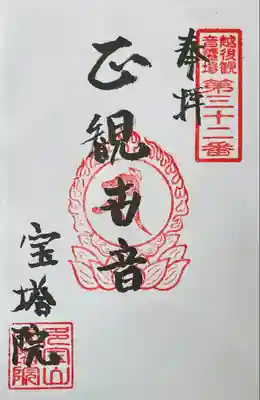 越後観
音霊場
第三十二番
奉拝
正観世音
宝塔院